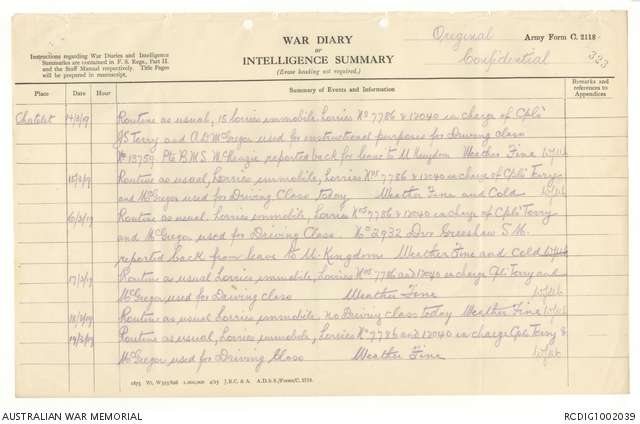 WAR DIARY
or
INTELLIGENCE SUMMARY
(Erase heading not required.)
Original
Confidential
Army Form C. 2118
323
Instructions regarding War Diaries and Intelligence
Summaries are contained in F. S. Regs., Part II.
and the Staff Manual respectively. Title Pages
will be prepared in manuscript.
Place Date Hour Summary of Events and Information Remarks and references to Appendices
Chatelet 14/3/19 Routine as usual, 15 lorries immobile, Lorries Nos 7786 & 12040 in charge of Cpls
JS Terry and A.D. McGregor used for instructional purposes for Driving class
No 13759 Pte B.M.S. McKenzie reported back for leave to U. Kingdom Weather Fine
15/3/19 Routine as usual, Lorries immobile, Lorries Nos 7786 & 12040 in charge of Cpls Terry
and McGregor used for Driving Class today Weather Fine and Cold
16/3/19 Routine as usual, Lorries immobile, Lorries Nos 7786 & 12040 in charge of Cpls Terry
and McGregor used for Driving Class. No 2932 Dvr Greeshaw S.M.
reported back from leave to U. Kingdom Weather Fine and Cold
17/3/19 Routine as usual Lorries immobile, Lorries Nos 7786 and 12040 in charge Cpls Terry and
McGregor used for Driving class Weather Fine
18/3/19 Routine as usual Lorries immobile, no Driving class today Weather Fine
19/3/19 Routine as usual, Lorries immobile, Lorries Nos 7786 and 12040 in charge Cpls Terry &
McGregor used for Driving Class Weather Fine
1,000,000 4/17 J.B.C. & A. A.D.S.S./Forms/C. 2118.
AUSTRALIAN WAR MEMORIAL
RCDIG1002039